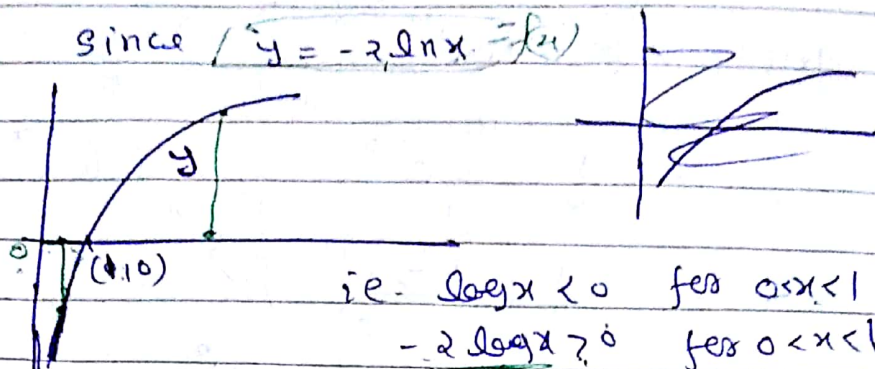 since y = -2 ln x = f(x)
y
0
(1,0)
ie. log x < 0 for 0<x<1
-2 log x > 0 for 0<x<1